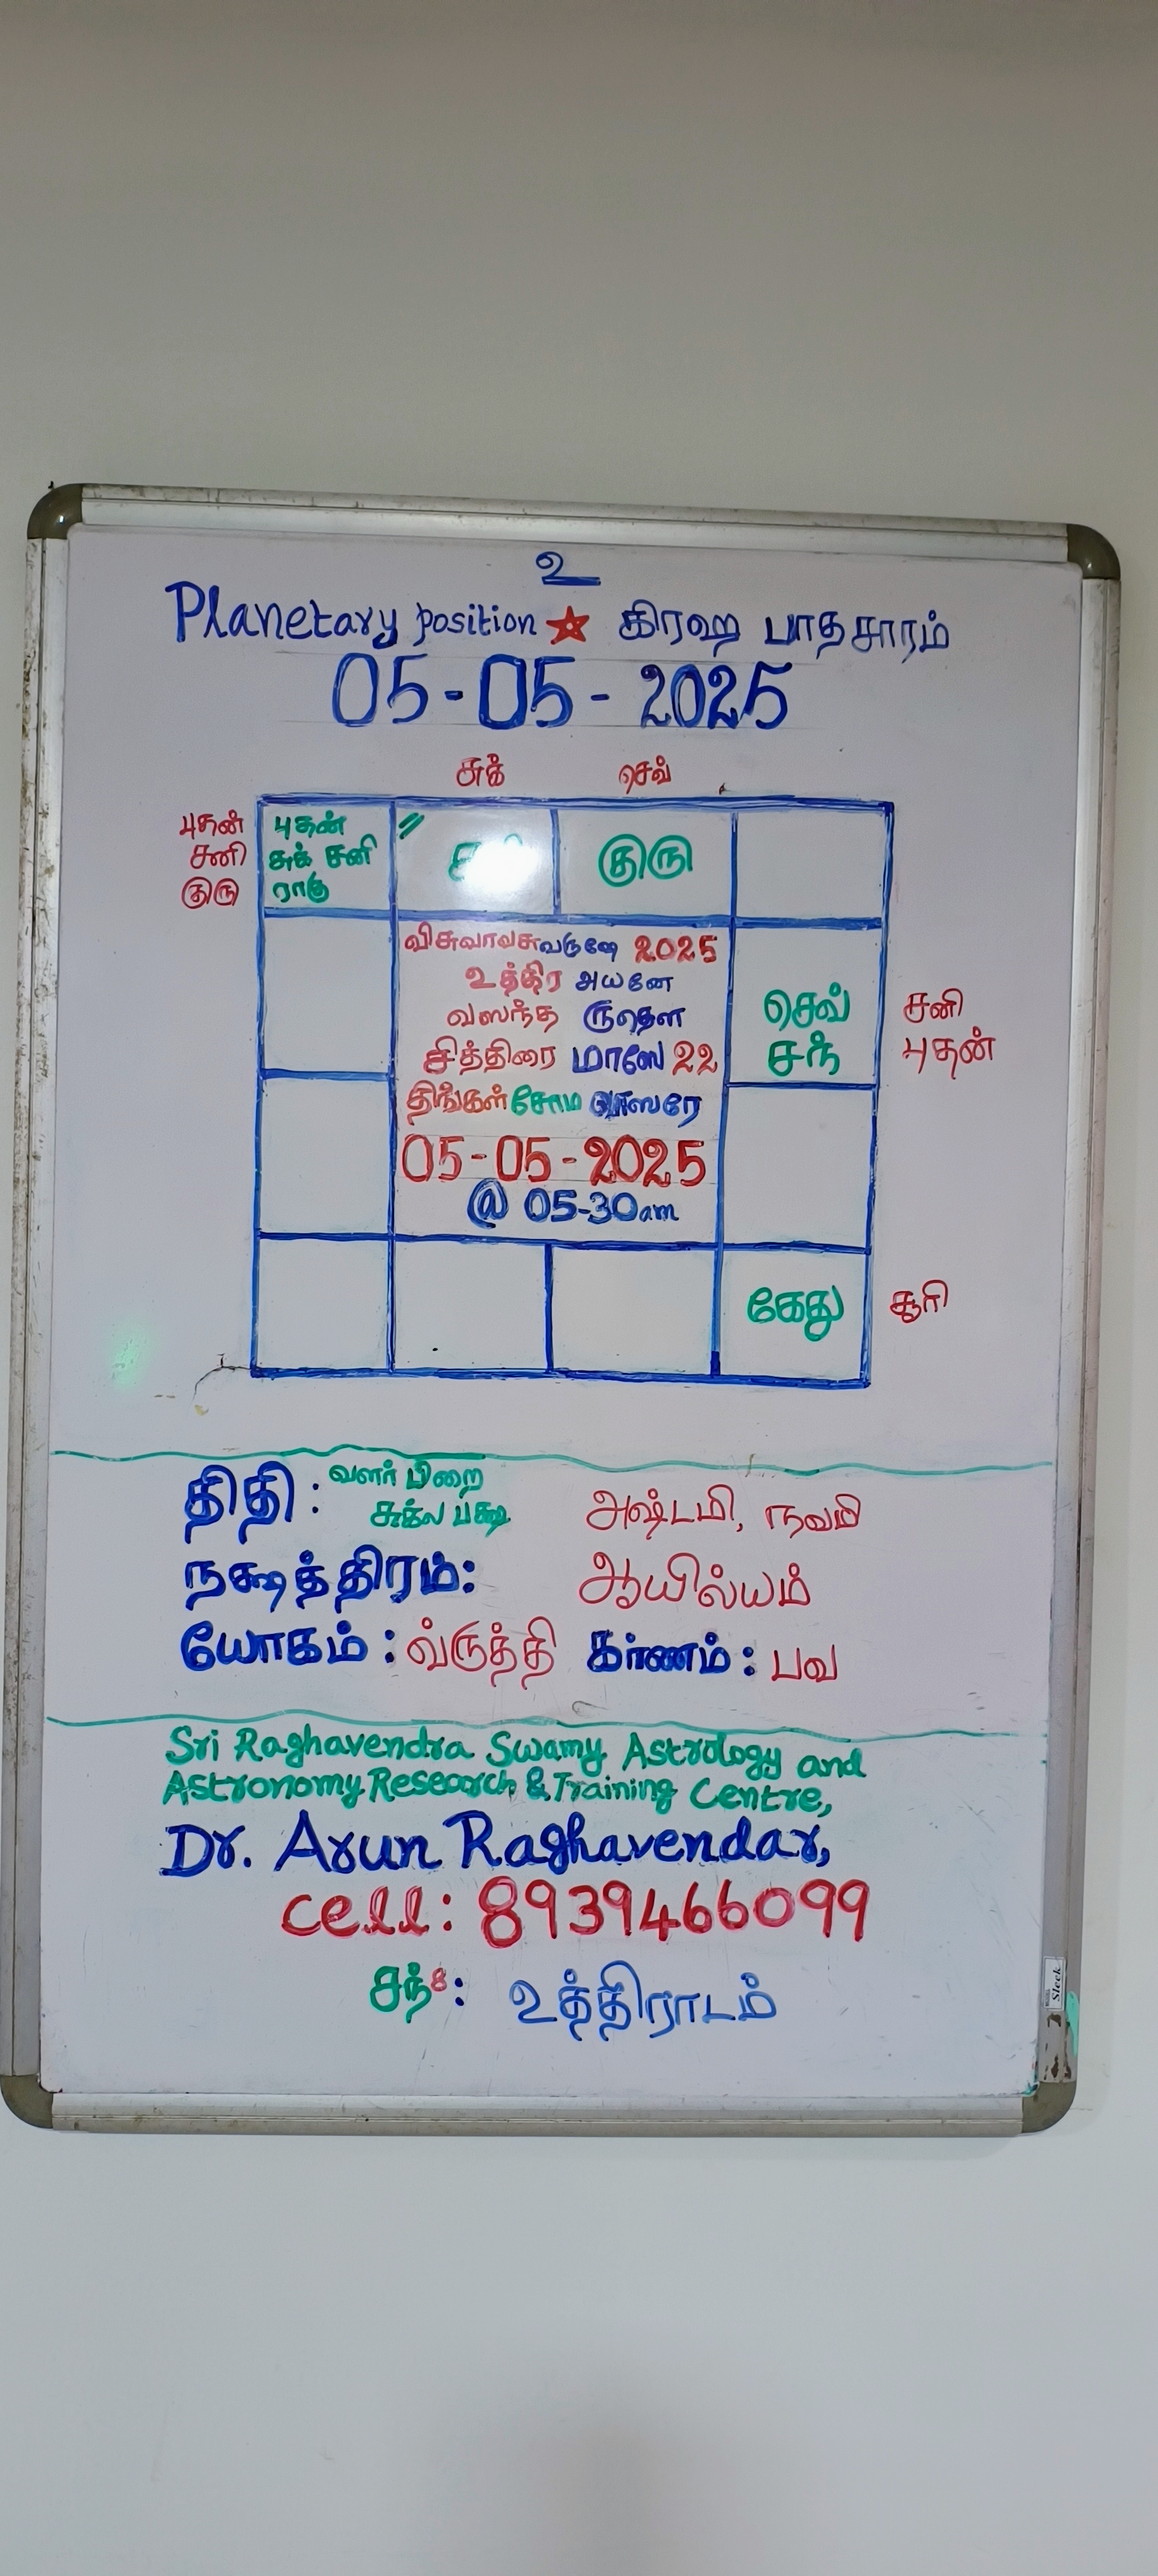 உ
Planetary position ★ கிரஹ பாதசாரம்
05-05-2025
சுக் செவ்
புதன் புதன்
சனி சுக் சனி குரு
குரு ராகு
விசுவாவசு வருஷே 2025
உத்திர அயனே
வஸந்த ருதௌ
செவ் சனி
சித்திரை மாஸே 22 சந் புதன்
திங்கள் சோம வாஸரே
05-05-2025
@ 05-30am
கேது சூரி
திதி : வளர் பிறை
சுக்ல பக்ஷ அஷ்டமி, நவமி
நக்ஷத்திரம்: ஆயில்யம்
யோகம் : வ்ருத்தி கர்ணம் : பவ
Sri Raghavendra Swamy Astrology and
Astronomy Research & Training Centre,
Dr. Arun Raghavendar,
cell: 8939466099
சந்8: உத்திராடம்
Sleek